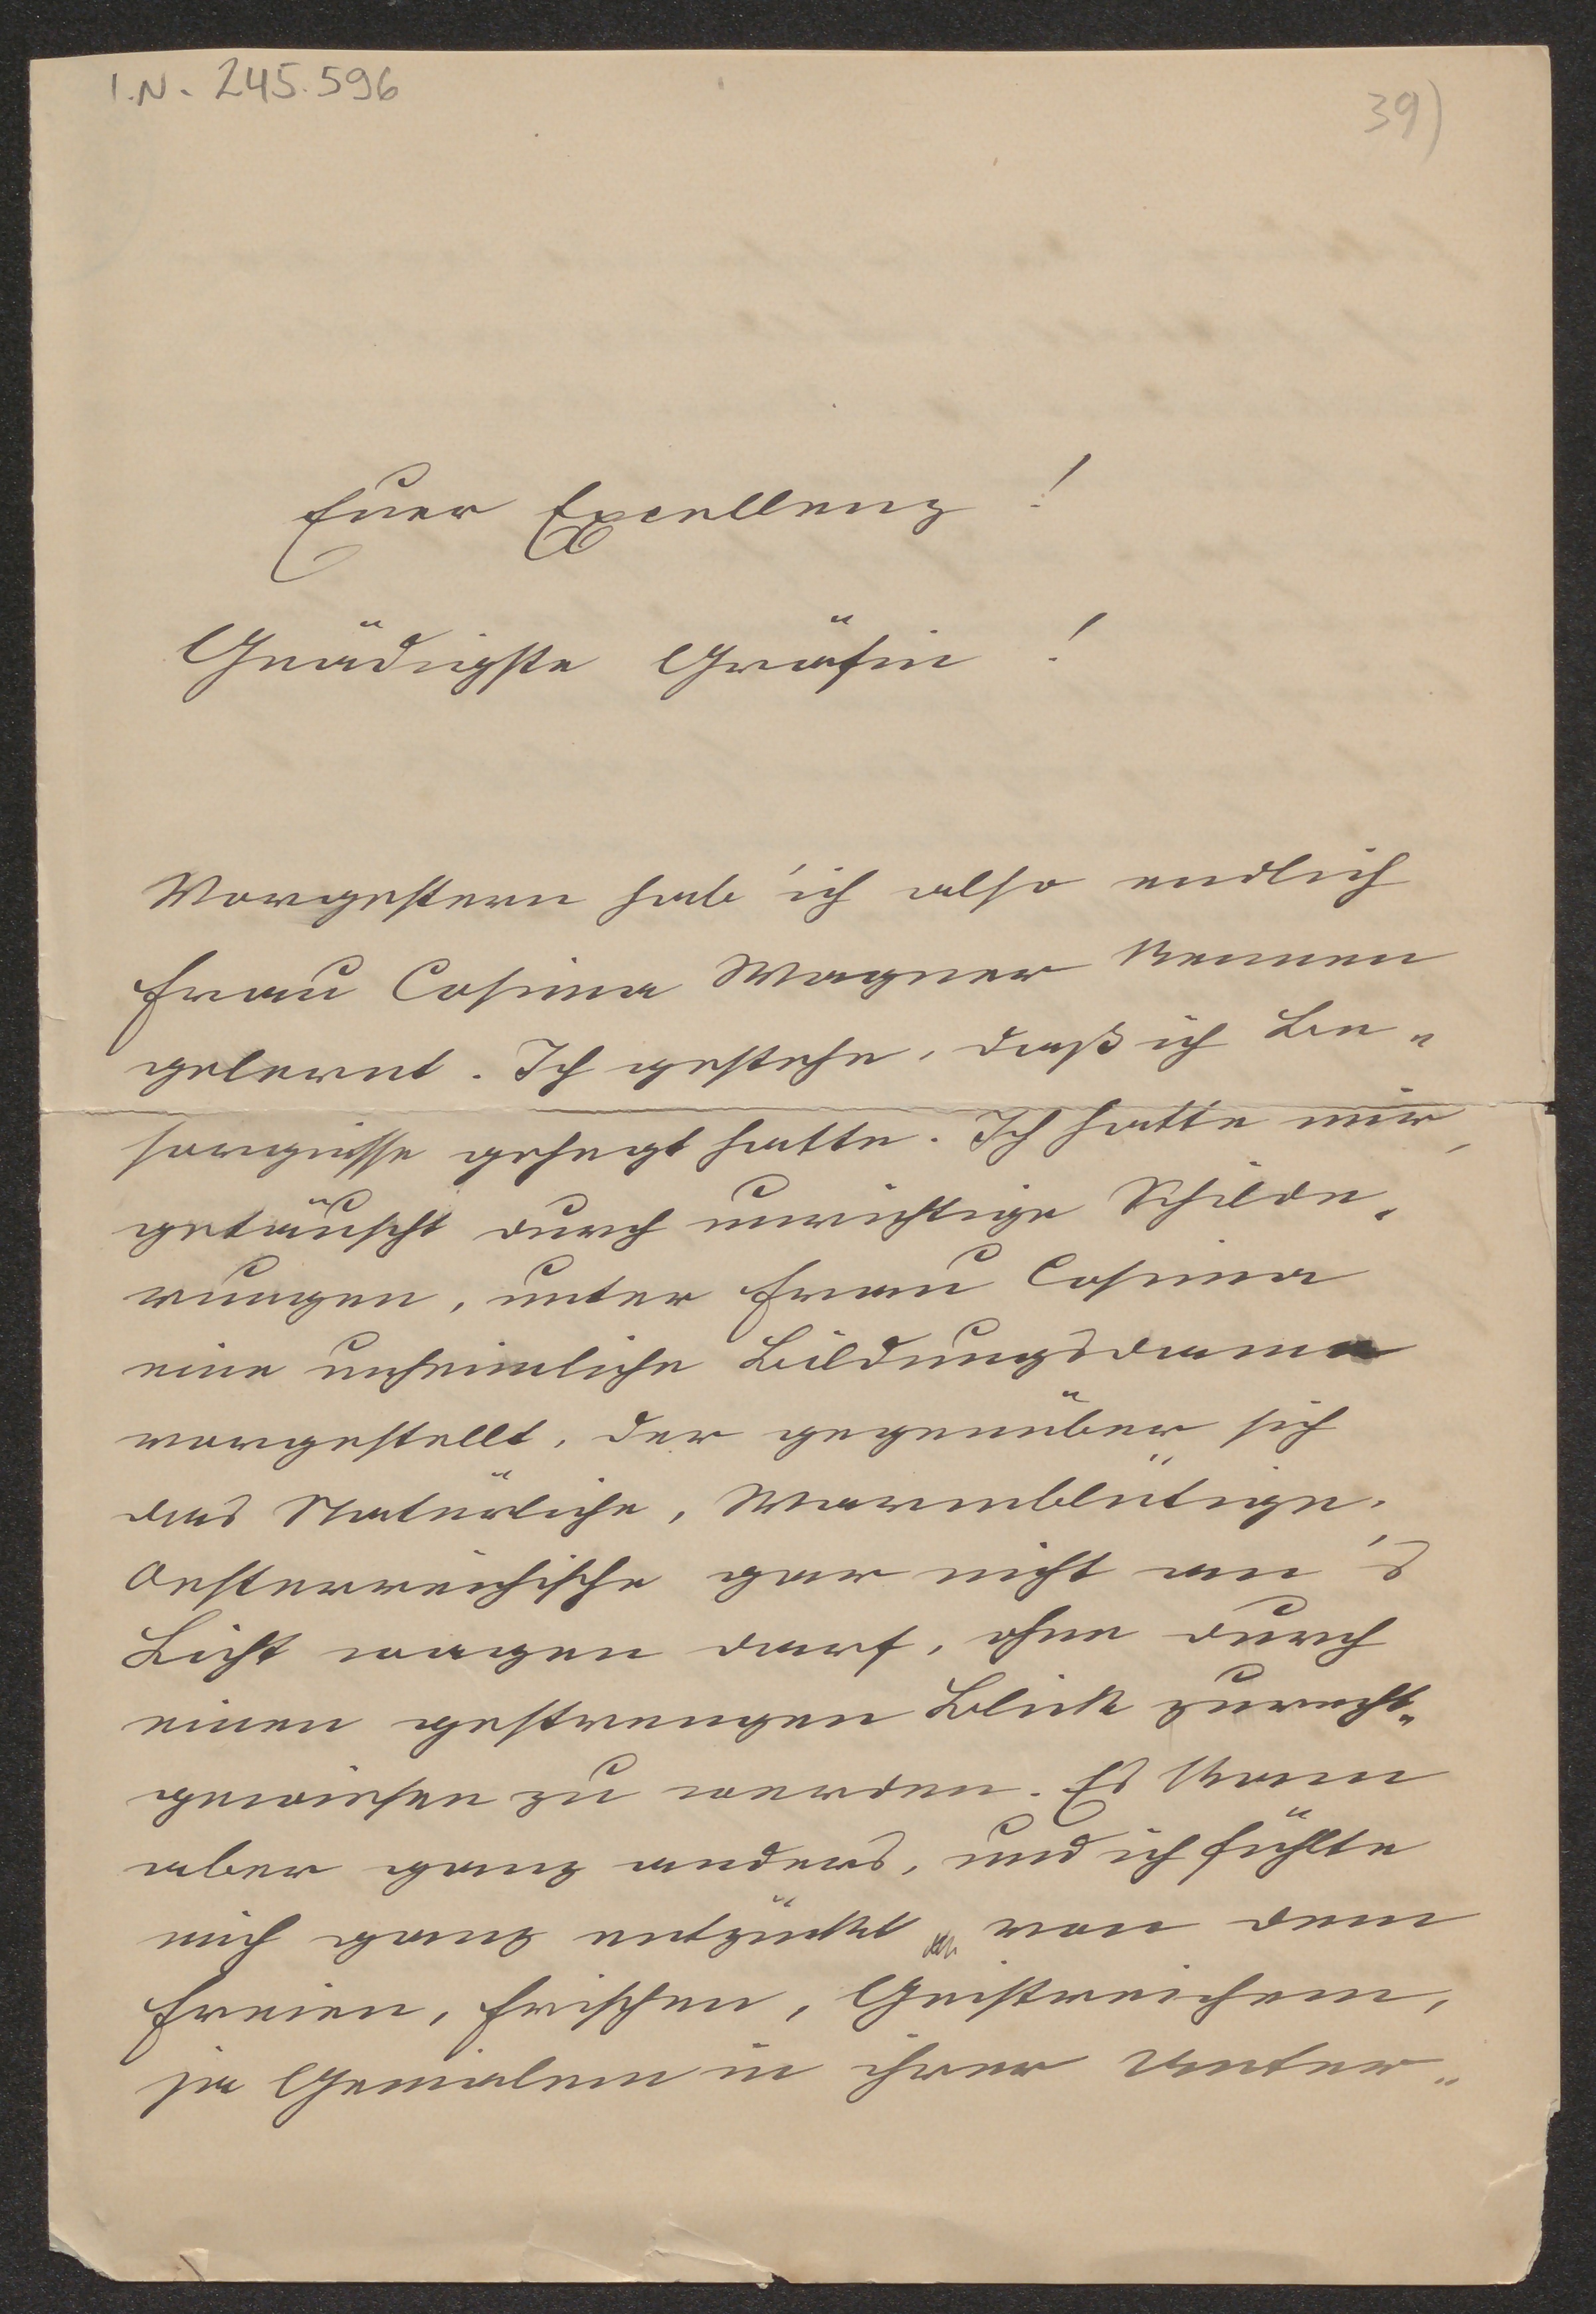 I.N. 245.596
39)
Euer Excellenz !
Gnädigste Gräfin !
Vorgestern hab' ich also endlich
Frau Cosima Wagner kennen
gelernt. Ich gestehe, daß ich Be„
sorgnisse gehegt hatte. Ich hatte mir,
getäuscht durch unrichtige Schilde„
rungen, unter Frau Cosima
eine unheimliche Bildungsdame
vorgestellt, der gegenüber sich
das Natürliche, Warmblütige,
Oesterreichische gar nicht an's
Licht wagen darf, ohne durch
einen gestrengen Blick zurecht„
gewiesen zu werden. Es kam
aber ganz anders, und ich fühlte
mich ganz entzückt von dem
Freien, Frischen, Geistreichem,
ja Genialem in ihrer Unter„